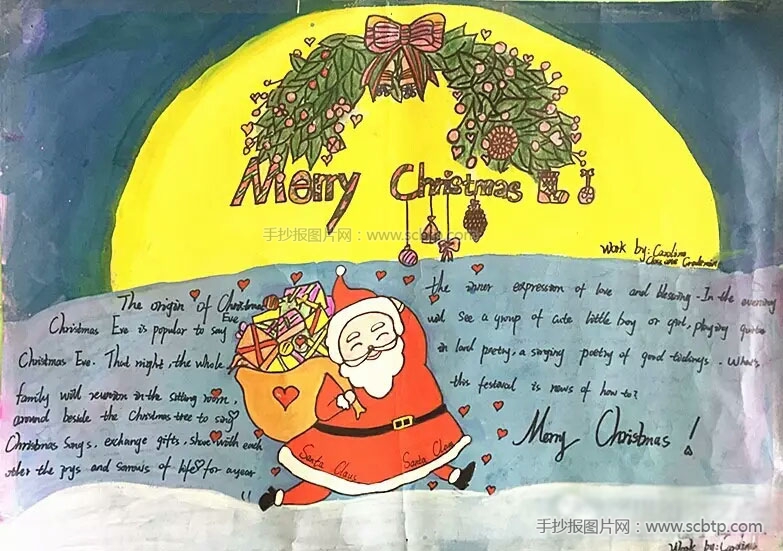 Merry Christmas
手抄报图片网：www.scbtp.com
Work by: Caroline
The origin of Christmas
Eve
Christmas Eve is popular to say
Christmas Eve. That night, the whole
family will reunion in the sitting room,
around beside the Christmas tree to sing
Christmas songs, exchange gifts, share with each
other the joys and sorrows of life for a year
!!
the inner expression of love and blessing. In the evening
will see a group of cute little boy or girl, playing guitar
in land poetry, a singing poetry of good tidings. What's
this festival is news of how to?
Merry Christmas!
Santa Claus Santa Claus
手抄报图片网：www.scbtp.com
Work by: Caroline